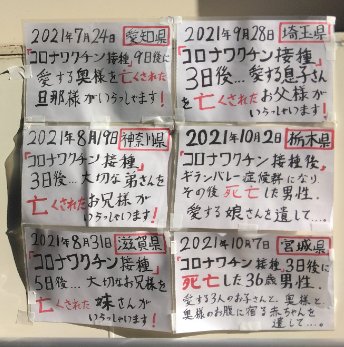 2021年7月24日 愛知県
「コロナワクチン接種」9日後に
愛する奥様を亡くされた
旦那様がいらっしゃいます!
2021年8月19日 神奈川県
「コロナワクチン接種」
3日後…大切な弟さんを
亡くされたお兄様が
いらっしゃいます!
2021年8月31日 滋賀県
「コロナワクチン接種」
5日後…大切なお兄様を
亡くされた妹さんが
いらっしゃいます!
2021年9月28日 埼玉県
「コロナワクチン接種」
3日後…愛する息子さん
を亡くされたお父様が
いらっしゃいます!
2021年10月2日 栃木県
「コロナワクチン接種後」
ギランバレー症候群になり
その後死亡した男性。
愛する娘さんを遺して…。
2021年10月7日 宮城県
「コロナワクチン接種」3日後に
死亡した36歳男性。
愛する3人のお子さんと、奥様と、
奥様のお腹に宿る赤ちゃんを
遺して…。